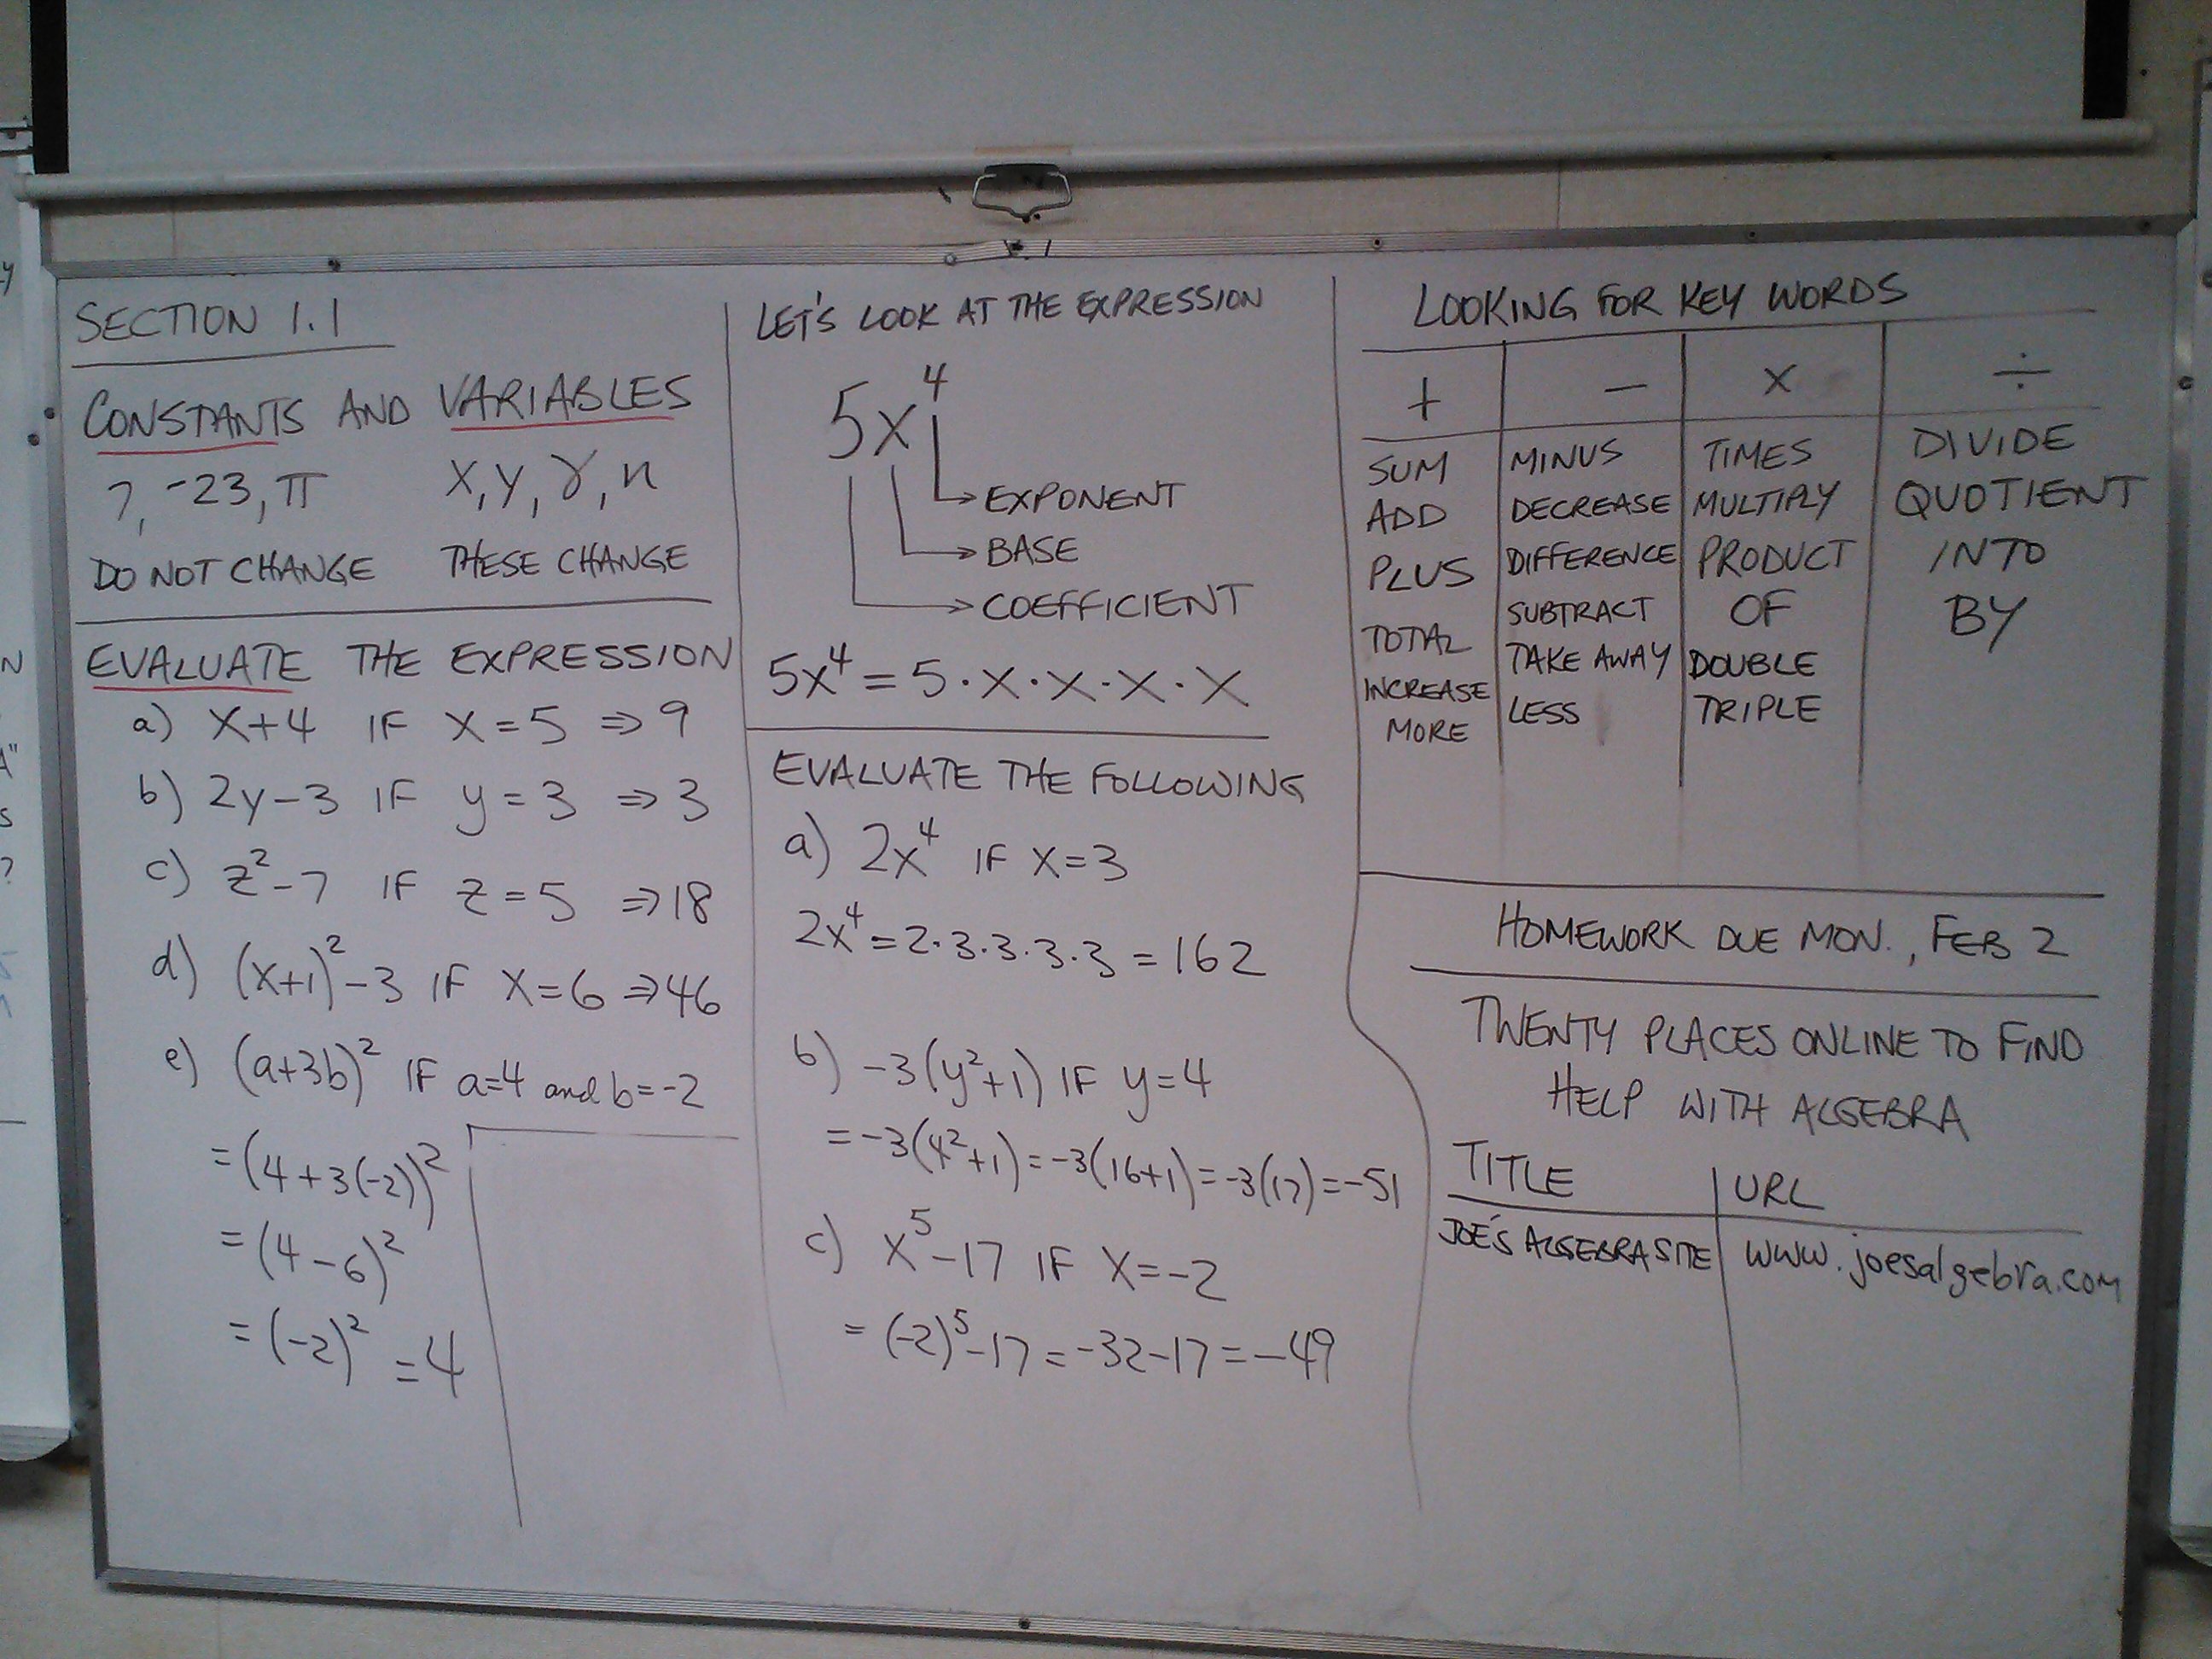 SECTION 1.1
CONSTANTS AND VARIABLES
7, -23, π x, y, γ, n
DO NOT CHANGE THESE CHANGE
EVALUATE THE EXPRESSION
a) x+4 IF x=5 ⇒ 9
b) 2y-3 IF y=3 ⇒ 3
c) z²-7 IF z=5 ⇒ 18
d) (x+1)²-3 IF x=6 ⇒ 46
e) (a+3b)² IF a=4 and b=-2
=(4+3(-2))²
=(4-6)²
=(-2)²=4
LET'S LOOK AT THE EXPRESSION
5x⁴
EXPONENT
BASE
COEFFICIENT
5x⁴=5·x·x·x·x
EVALUATE THE FOLLOWING
a) 2x⁴ IF x=3
2x⁴=2·3·3·3·3=162
b) -3(y²+1) IF y=4
=-3(4²+1)=-3(16+1)=-3(17)=-51
c) x⁵-17 IF x=-2
=(-2)⁵-17=-32-17=-49
LOOKING FOR KEY WORDS
+ − × ÷
SUM MINUS TIMES DIVIDE
ADD DECREASE MULTIPLY QUOTIENT
PLUS DIFFERENCE PRODUCT INTO
TOTAL SUBTRACT OF BY
INCREASE TAKE AWAY DOUBLE
MORE LESS TRIPLE
HOMEWORK DUE MON., FEB 2
TWENTY PLACES ONLINE TO FIND
HELP WITH ALGEBRA
TITLE URL
JOE'S ALGEBRA SITE www.joesalgebra.com